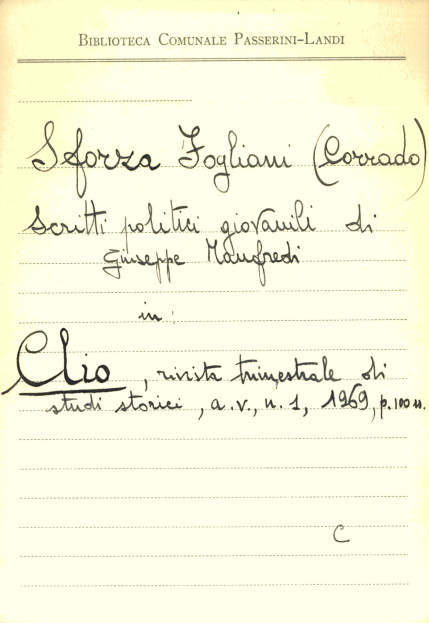 Biblioteca Comunale Passerini-Landi
Sforza Fogliani (Corrado)
Scritti politici giovanili di
Giuseppe Manfredi
in:
Clio, rivista trimestrale di
studi storici, a.v., n. 1, 1969, p. 100 ss.
C